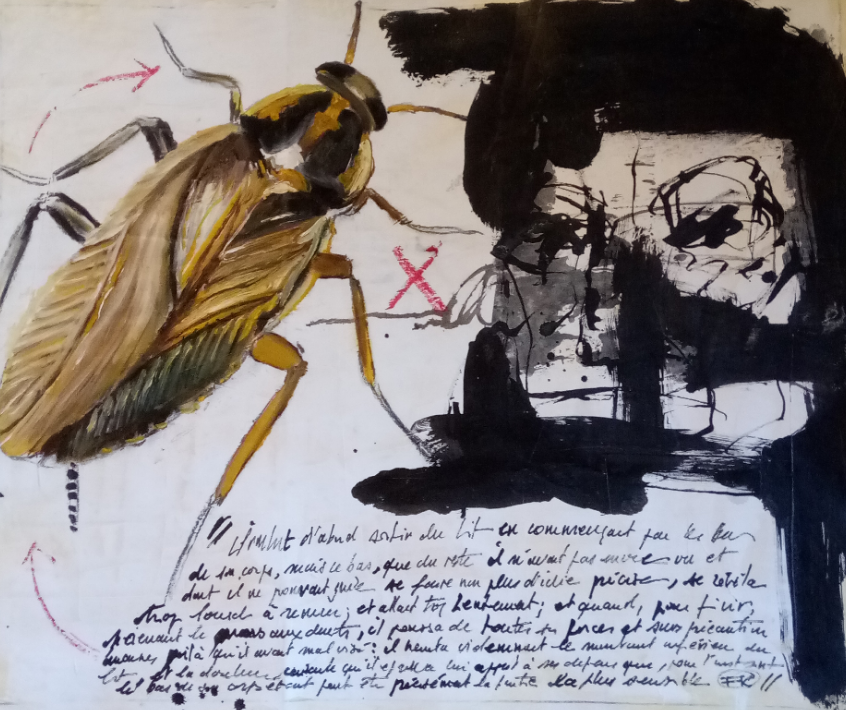 " Il voulut d'abord sortir du lit en commençant par le bas
de son corps, mais ce bas, que du reste il n'avait pas encore vu et
dont il ne pouvait guère se faire non plus d'idée précise, se révéla
trop lourd à remuer; et allait trop lentement; et quand, pour finir,
prenant le mors aux dents, il poussa de toutes ses forces et sans précaution
voilà qu'il avait mal visé: il heurta violemment le montant inférieur du
lit et la douleur cuisante qu'il éprouva lui apprit à ses dépens que, pour l'instant
le bas de son corps étant peut-être précisément la partie la plus sensible "